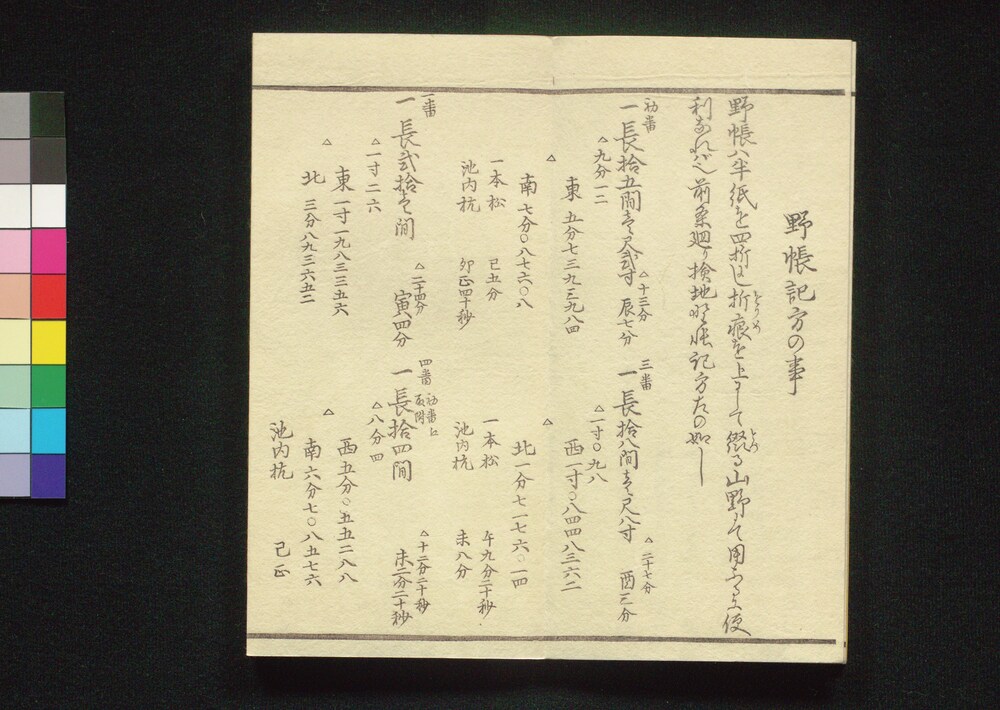 野帳記方の事
野帳ハ半紙を四折にし折痕を上にして綴る山野にて用ふるに便
利なれバなり前条廻り検地野帳記方左の如し
初番
一長拾五間壱尺弐寸
△十三分
辰七分
△九分一二
東 五分七三九三九八四
△
南 七分〇八七六〇八
一本松 己五分
池内杭 卯正四十秒
二番
一長弐拾壱間
△二十四分
寅四分
△一寸二六
東一寸一九八三三五六
△
北 三分八九三六五二
三番
一長拾八間壱尺八寸
△二十七分
酉三分
△一寸〇九八
西一寸〇八四四八三六二
△
北一分七一七六〇一四
一本松 午九分二十秒
池内杭 未八分
四番
初番に
一長拾四間
△十二分二十秒
未二分二十秒
△八分四
西五分〇五五二八八
△
南六分七〇八五七六
池内杭 己正